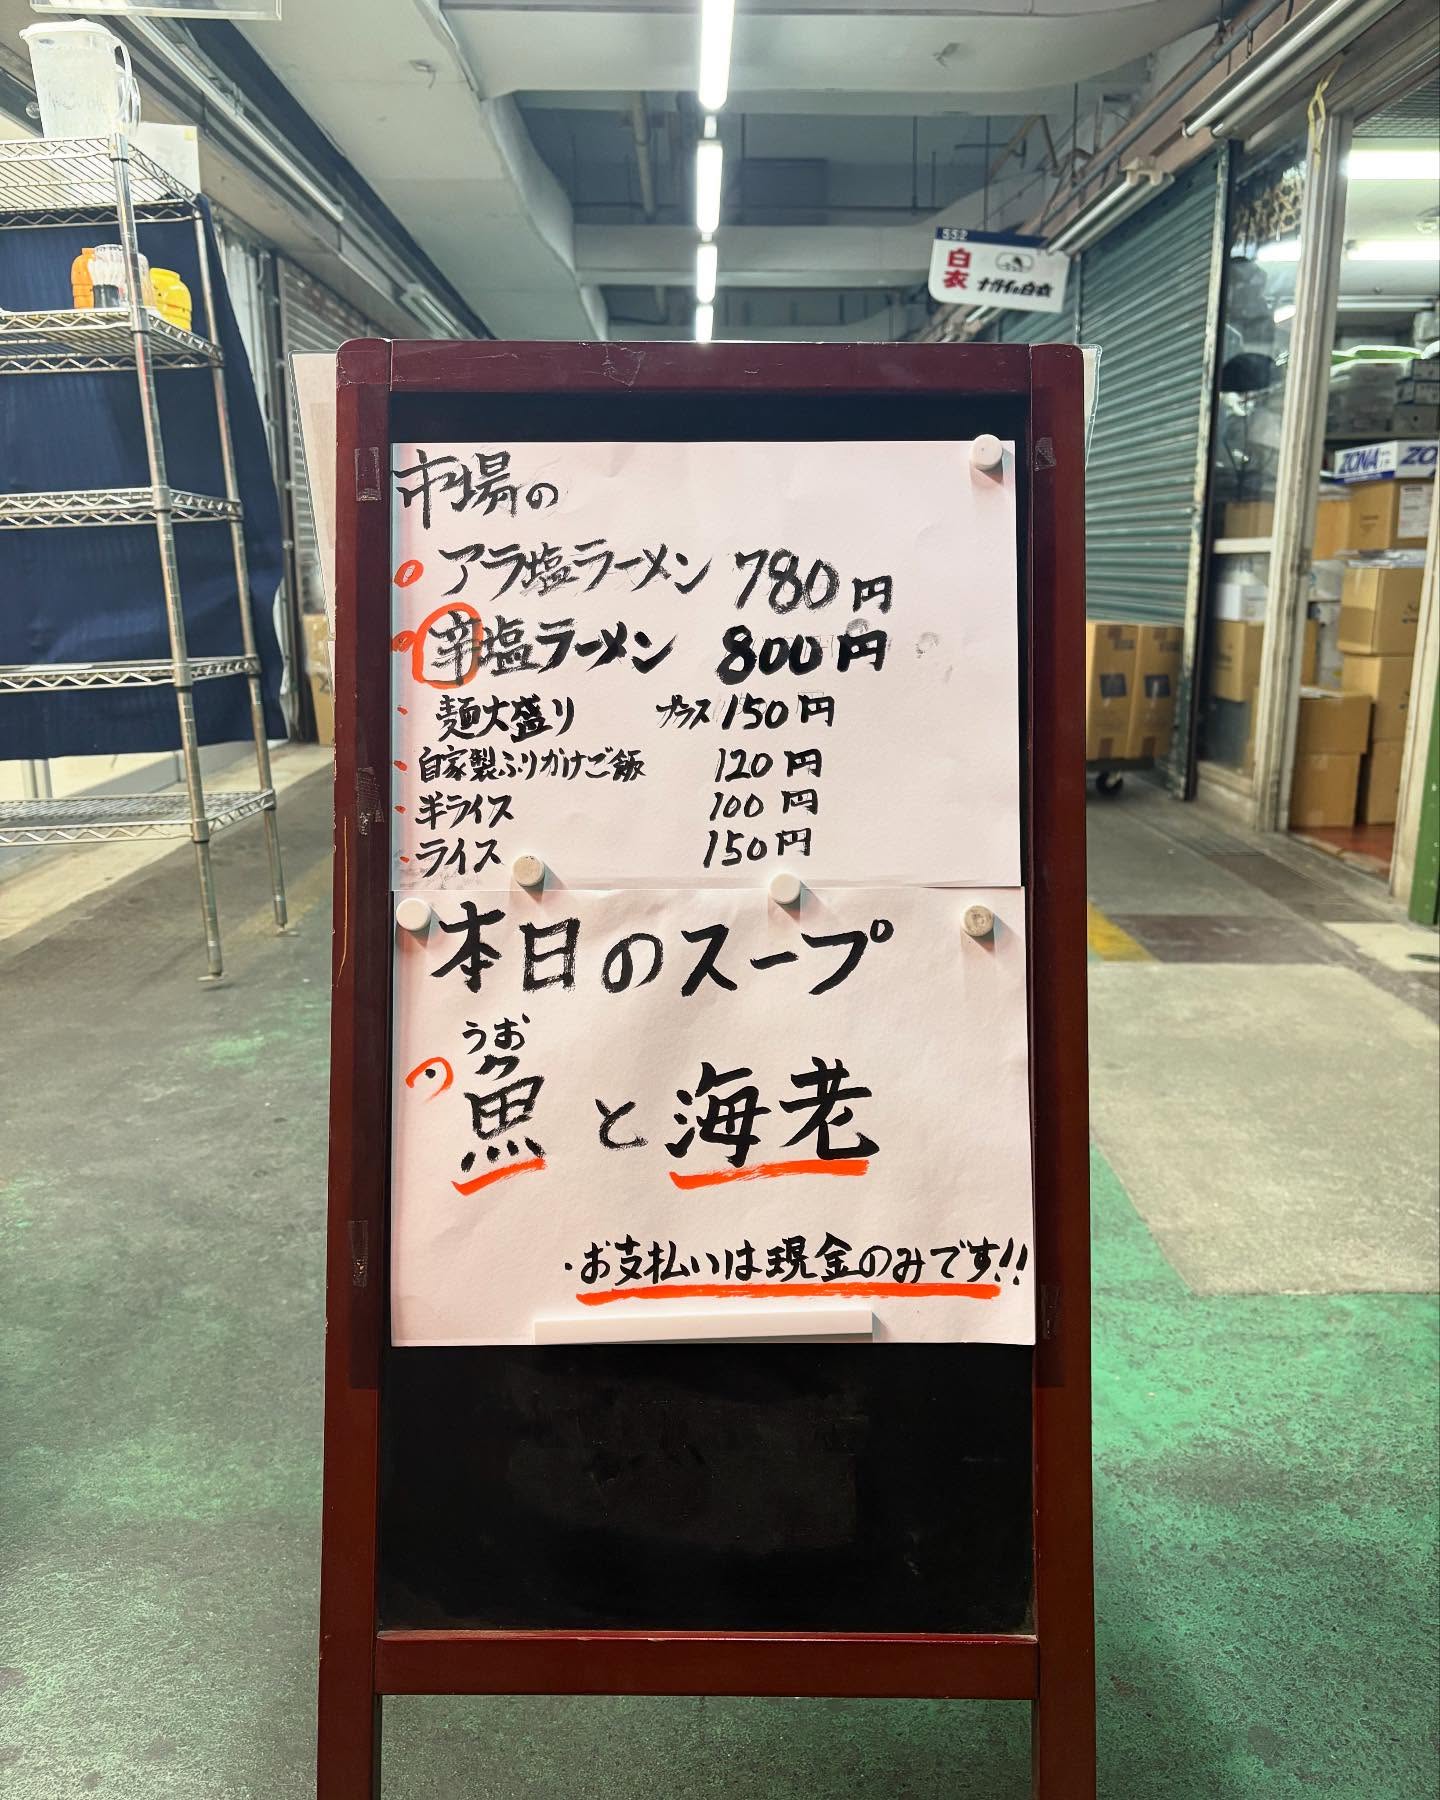 552
白衣
ナガイの白衣
ZONA
ZO
市場の
アラ塩ラーメン 780円
辛塩ラーメン 800円
麺大盛り プラス150円
自家製ふりかけご飯 120円
半ライス 100円
ライス 150円
本日のスープ
うお
魚と海老
・お支払いは現金のみです!!